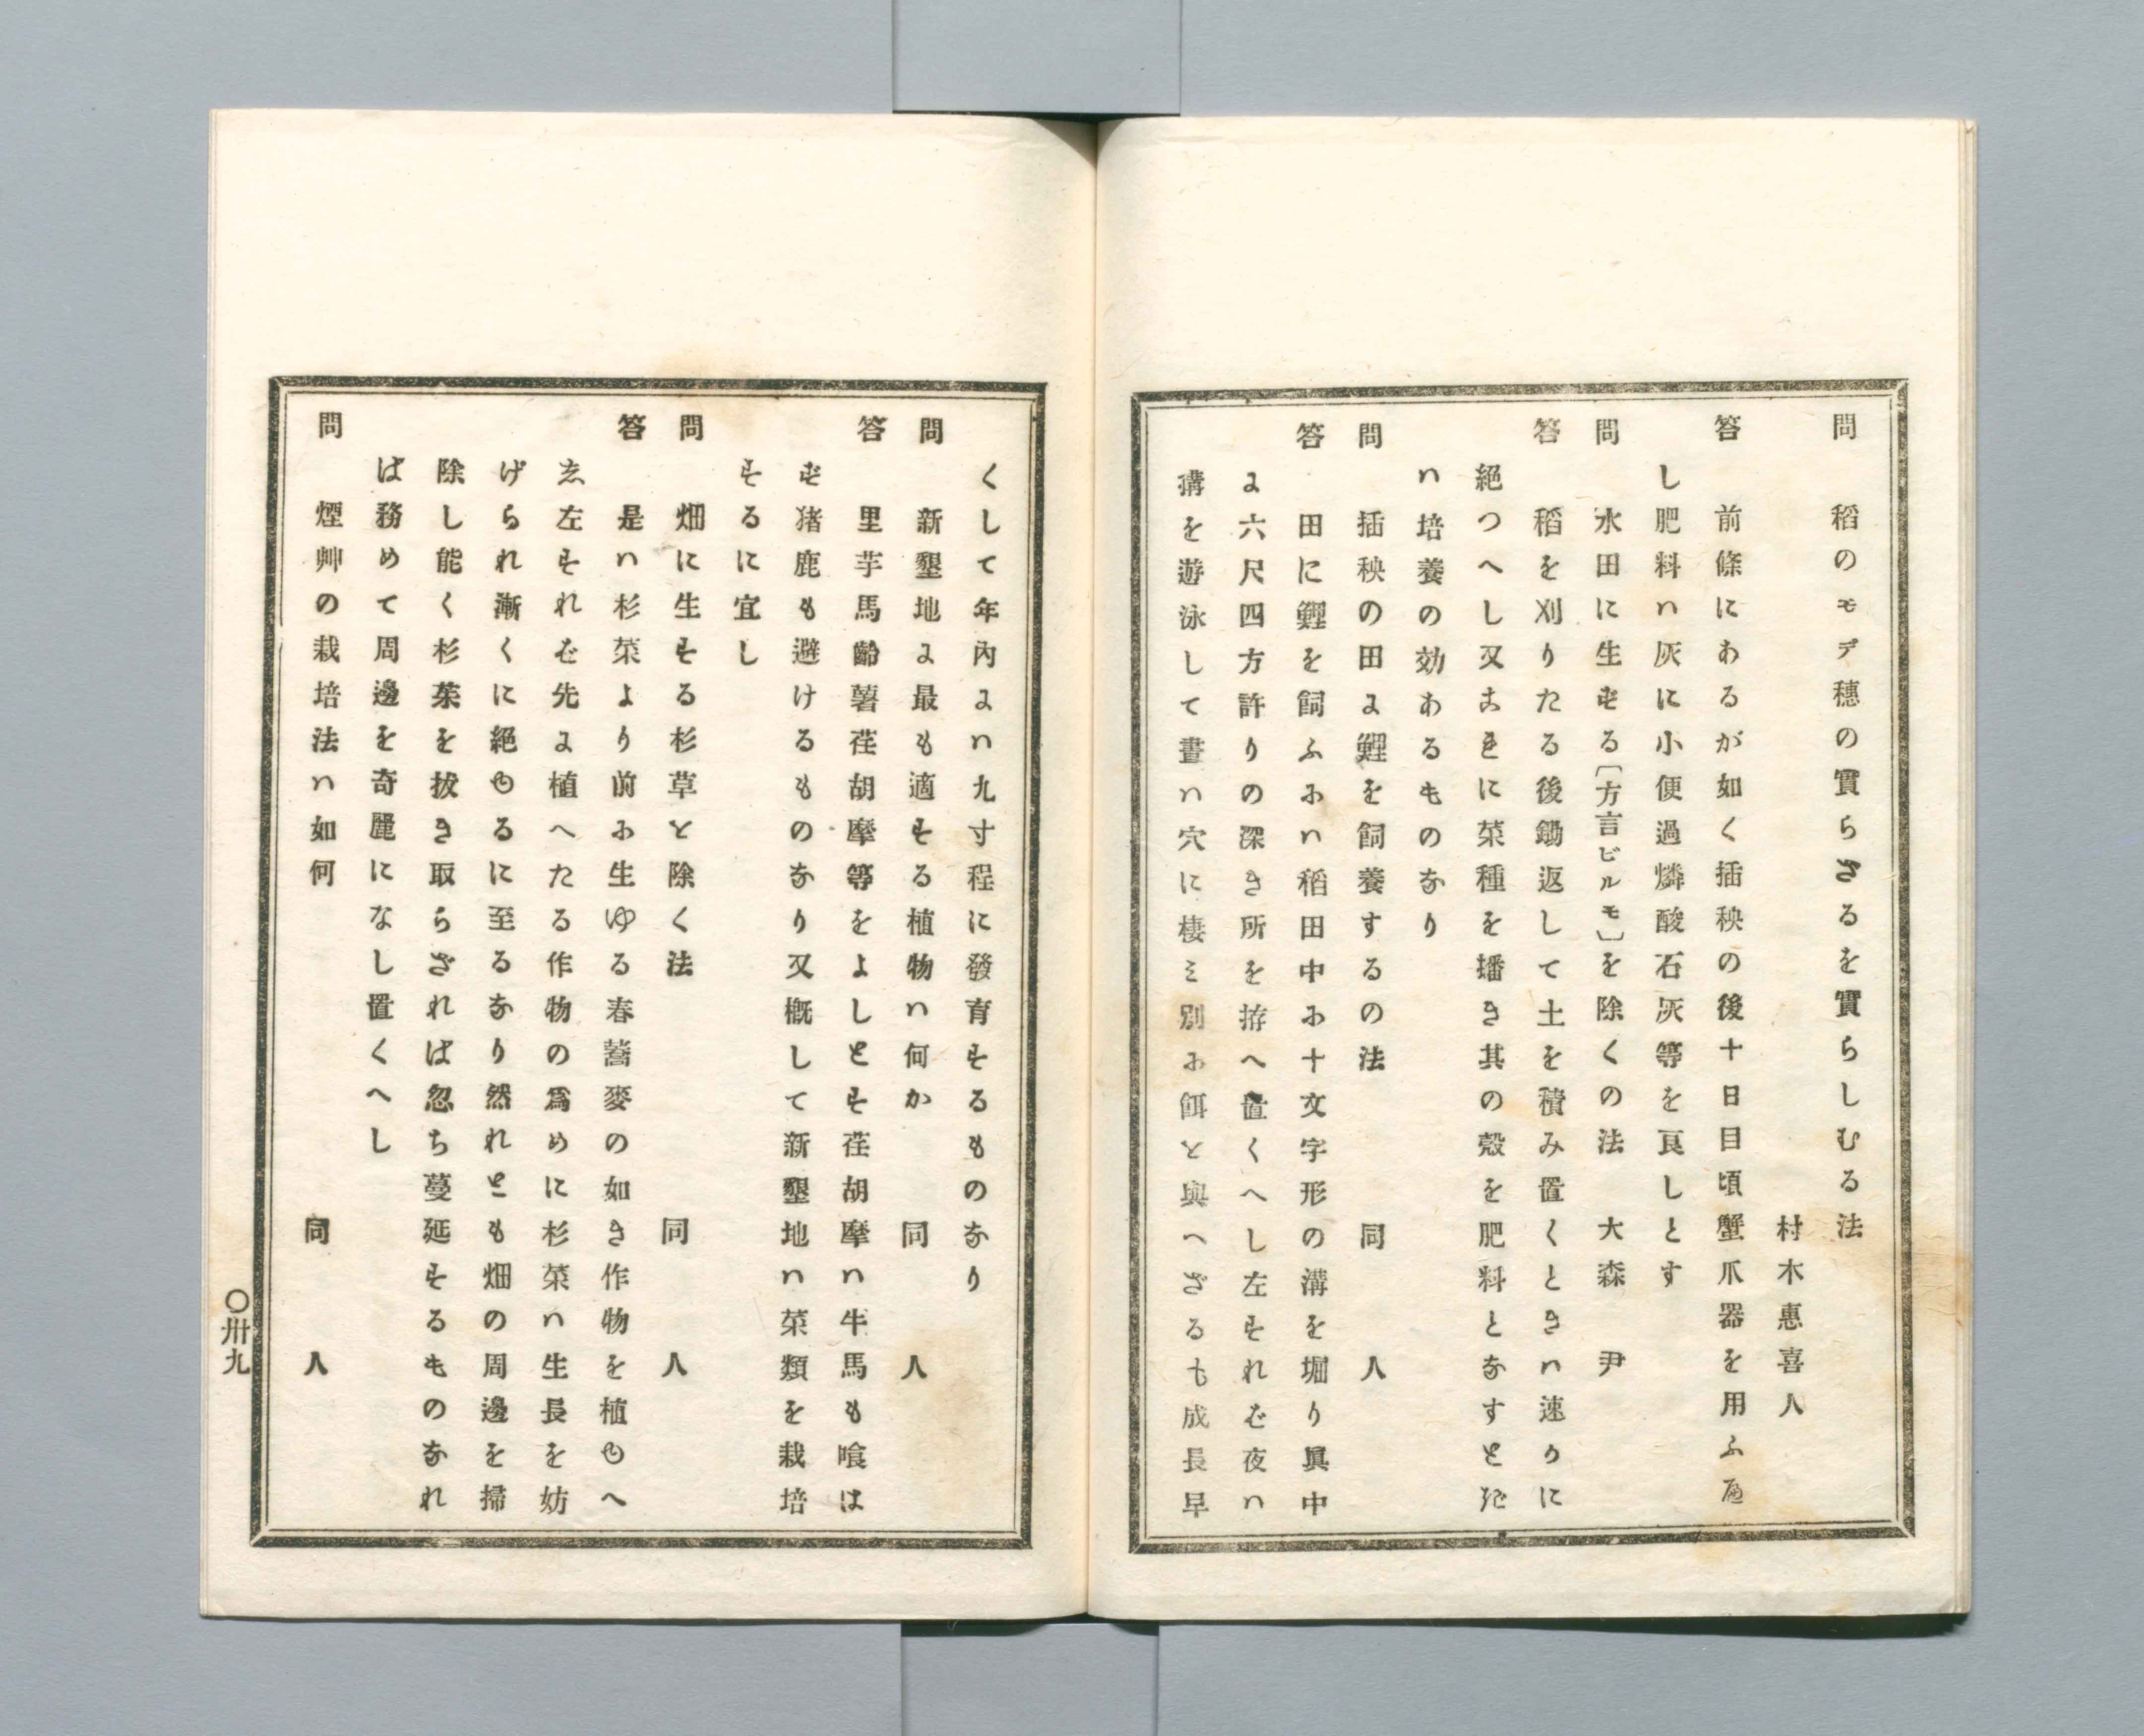 問　稻のモデ穗の實らざるを實らしむる法
村木惠喜人
答　前條にあるが如く插秧の後十日目頃蟹爪器を用ふべ
し肥料ハ灰に小便過燐酸石灰等を良しとす
問　水田に生ずる〔方言ビルモ〕を除くの法　大森　尹
答　稻を刈りたる後鋤返して土を積み置くときハ速かに
絕つへし又まきに菜種を播き其の殼を肥料となすとき
ハ培養の効あるものなり
問　插秧の田に鯉を飼養するの法　同　人
答　田に鯉を飼ふにハ稻田中に十文字形の溝を堀り眞中
に六尺四方許りの深き所を拵へ置くへし左すれば夜ハ
溝を遊泳して晝ハ穴に棲み別に餌と與へざるも成長早
くして年內にハ九寸程に發育するものなり
問　新墾地に最も適する植物ハ何か　同　人
答　里芋馬齡薯荏胡摩等をよしとす荏胡摩ハ牛馬も喰は
ず猪鹿も避けるものなり又槪して新墾地ハ菜類を栽培
するに宜し
問　畑に生する杉草と除く法　同　人
答　是ハ杉菜より前に生ゆる春蕎麥の如き作物を植ゆへ
ゑ左すれば先に植へたる作物の爲めに杉菜ハ生長を妨
げられ漸くに絕ゆるに至るなり然れとも畑の周邊を掃
除し能く杉菜を拔き取らざれば忽ち蔓延するものなれ
ば務めて周邊を奇麗になし置くへし
問　煙艸の栽培法ハ如何　同　人
〇卅九